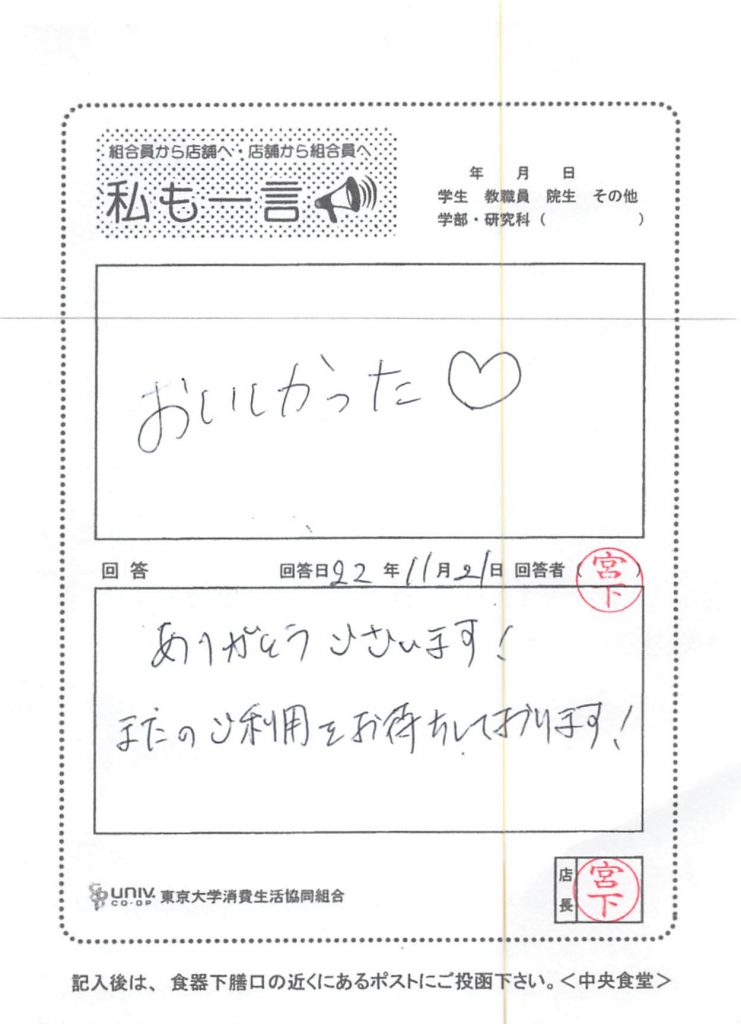 組合員から店舗へ・店舗から組合員へ
私も一言
年 月 日
学生 教職員 院生 その他
学部・研究科（ ）
おいしかった♡
回答 回答日22年11月21日 回答者（宮下）
ありがとうございます！
またのご利用をお待ちしております！
UNIV. CO-OP 東京大学消費生活協同組合
店長 宮下
記入後は、食器下膳口の近くにあるポストにご投函下さい。＜中央食堂＞